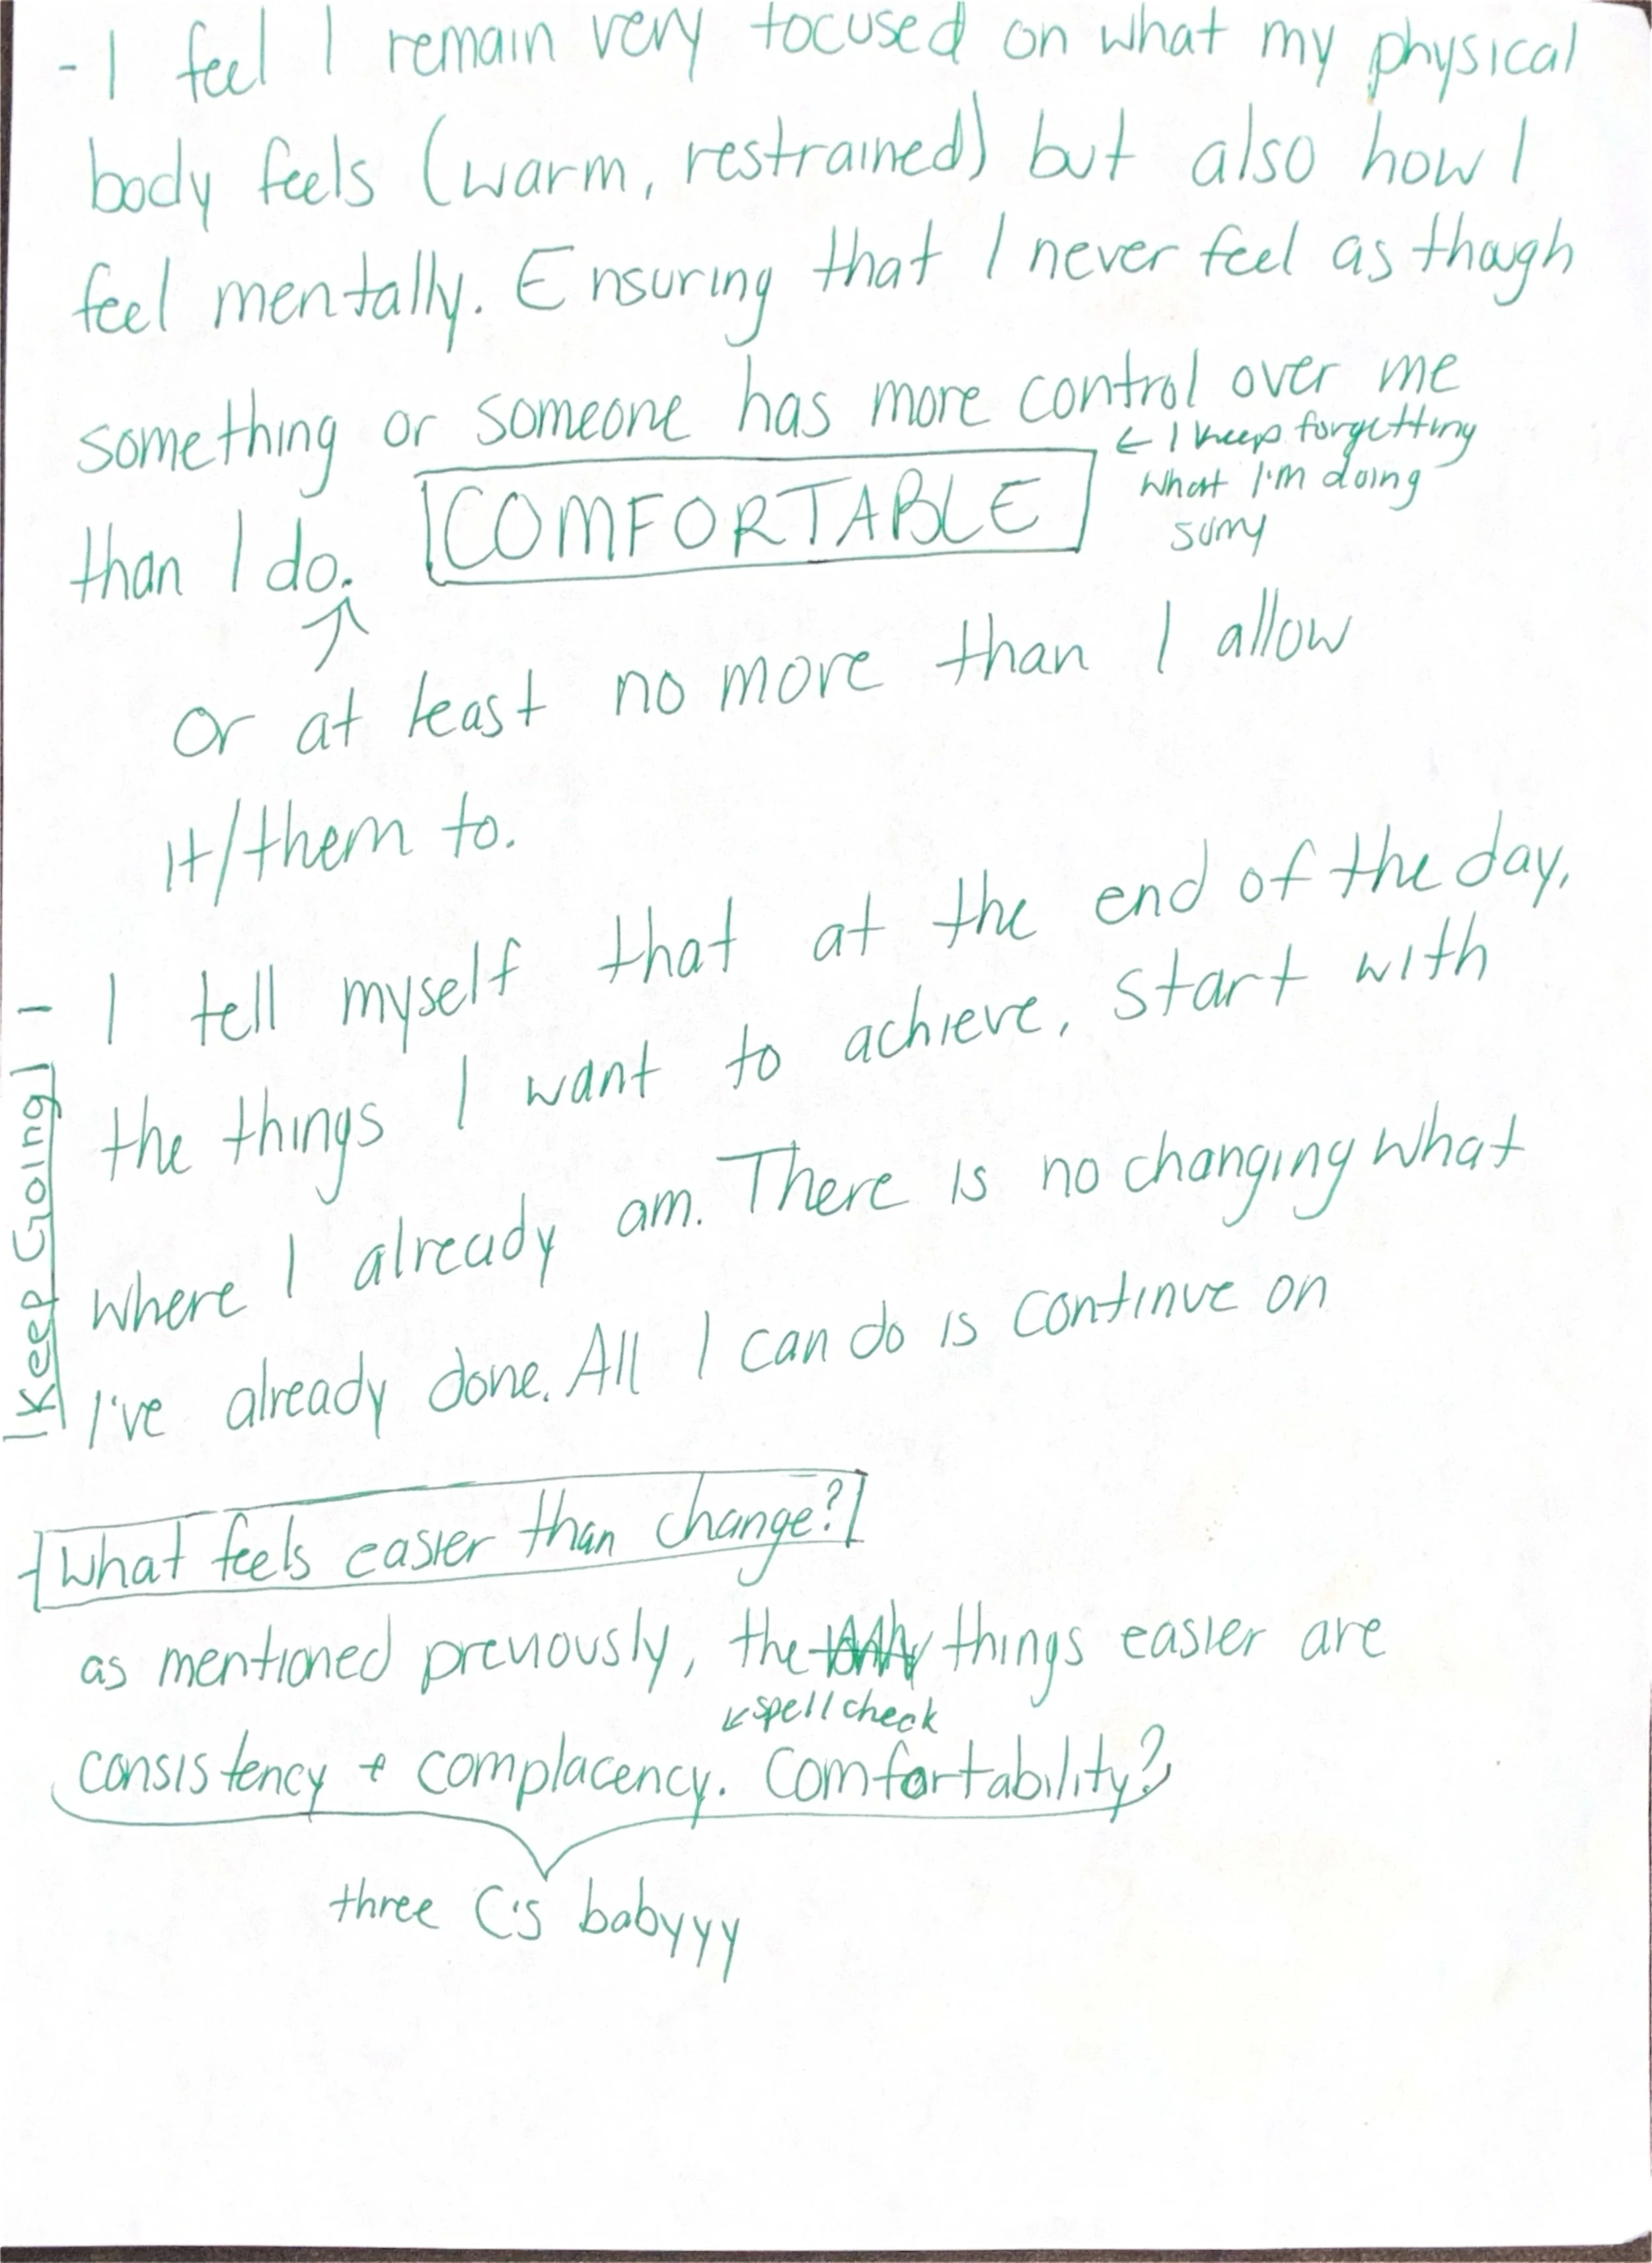 - I feel I remain very focused on what my physical
body feels (warm, restrained) but also how I
feel mentally. Ensuring that I never feel as though
something or someone has more control over me
than I do. COMFORTABLE
← I keep forgetting
what I'm doing
sorry
↑
or at least no more than I allow
it/them to.
- I tell myself that at the end of the day,
the things I want to achieve, start with
where I already am. There is no changing what
I've already done. All I can do is continue on
Keep Going
- What feels easier than change?
as mentioned previously, the things easier are
↙ spell check
consistency + complacency. Comfortability?
three C's babyyy